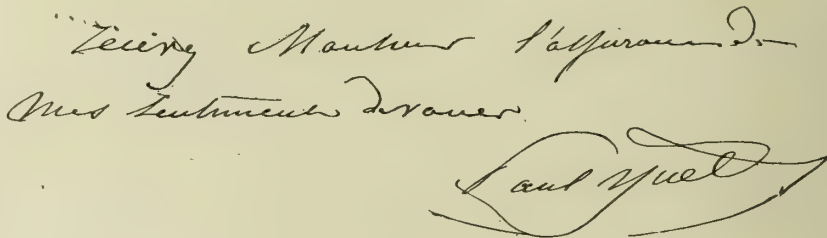 Recevez Monsieur l'assurance de
mes sentiments dévoués
Paul Huet